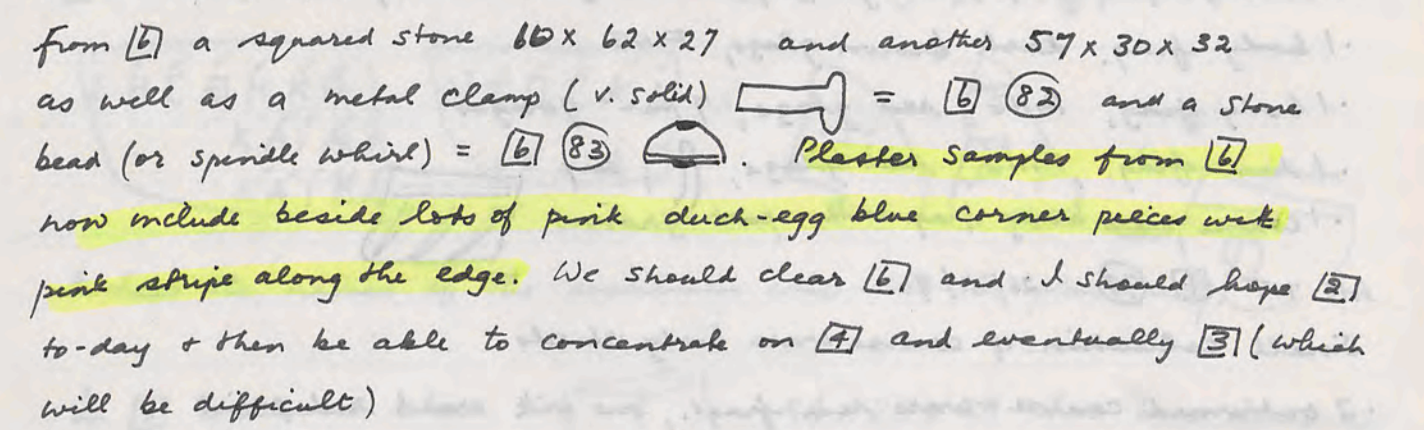 from [6] a squared stone 60 x 62 x 27 and another 57 x 30 x 32
as well as a metal clamp (v. solid) = [6] (82) and a stone
bead (or spindle whirl) = [6] (83) . Plaster samples from [6]
now include beside lots of pink duck-egg blue corner peices with
pink stripe along the edge. We should clear [6] and I should hope [2]
to-day + then be able to concentrate on [4] and eventually [3] (which
will be difficult)